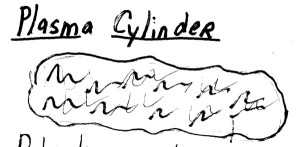 Plasma Cylinder